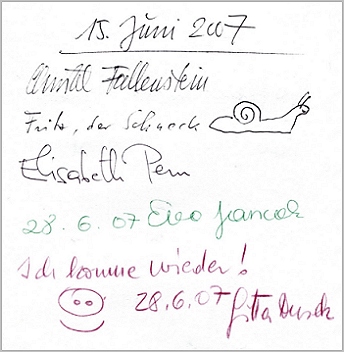 15. Juni 2007
Christl Fallenstein
Fritz, der Schneck
Elisabeth
28. 6. 07 Evo Jancok
Ich komme wieder!
28.6.07 Gitta Dusek